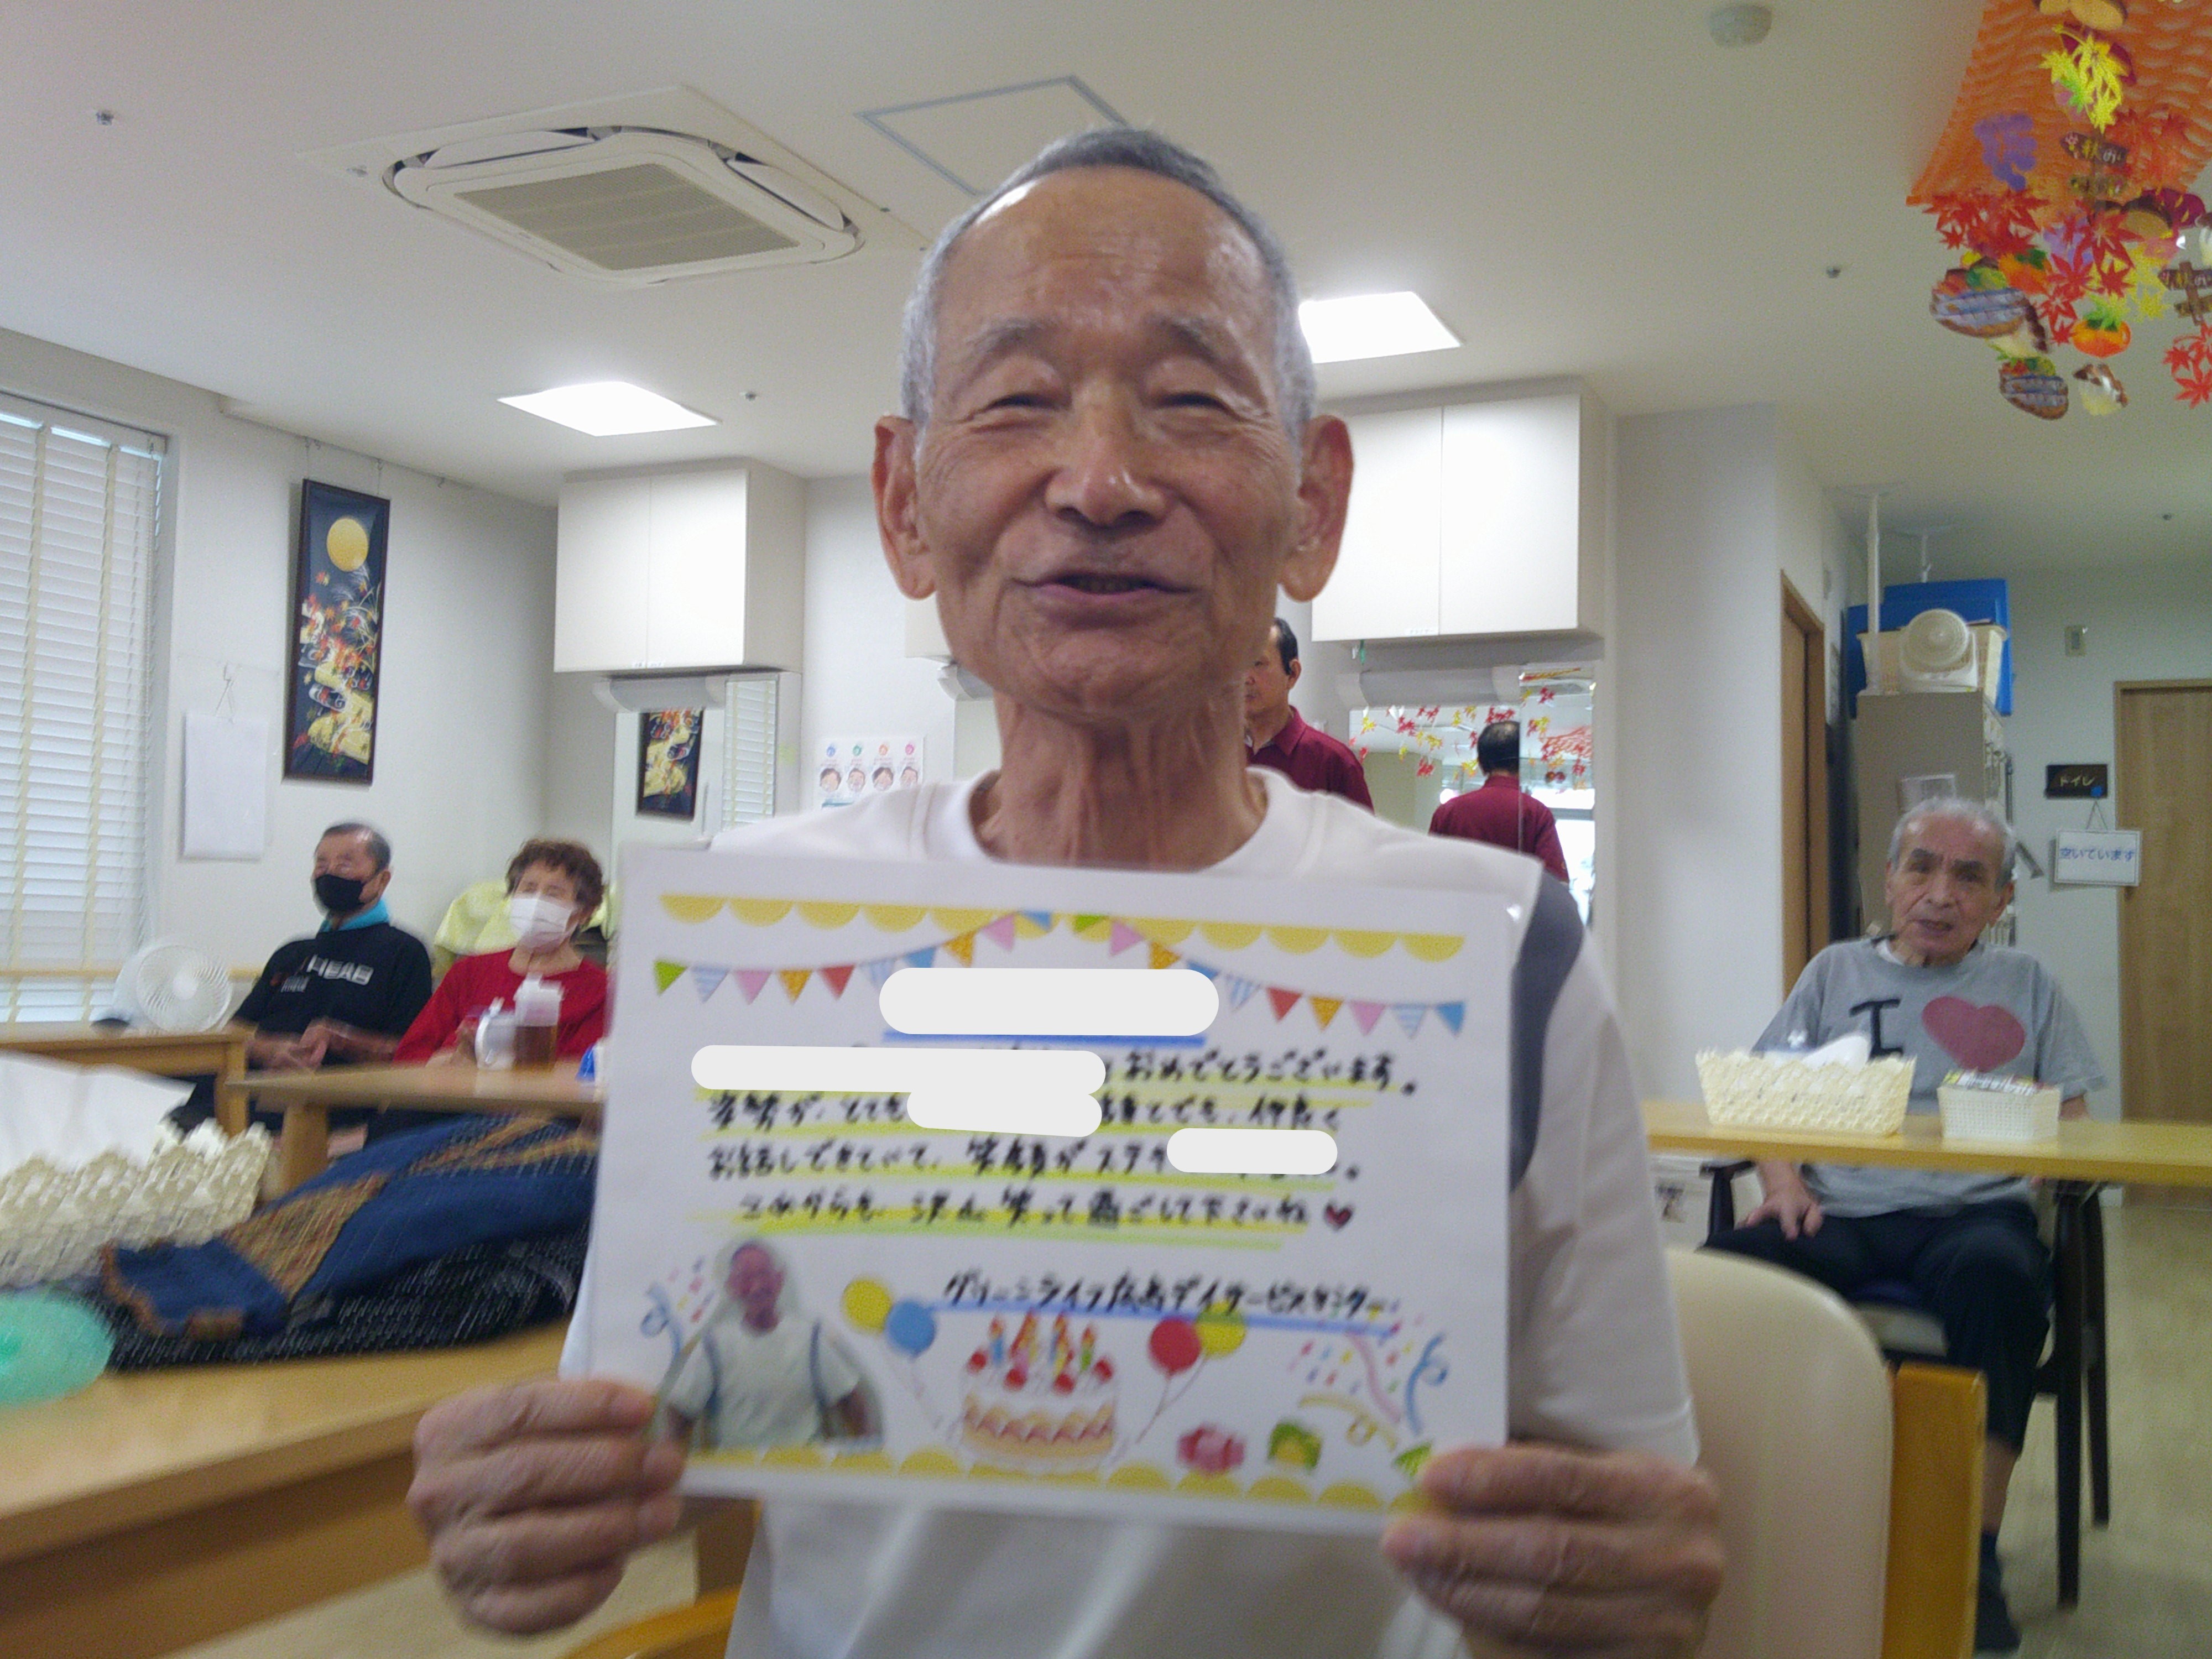 おめでとうございます。
姿勢が、とても
お話しできていて、笑顔がステ
これからも、沢山笑って過ごして下さいね
グリーンライフ広島デイサービスセンター
トイレ
空いています
I